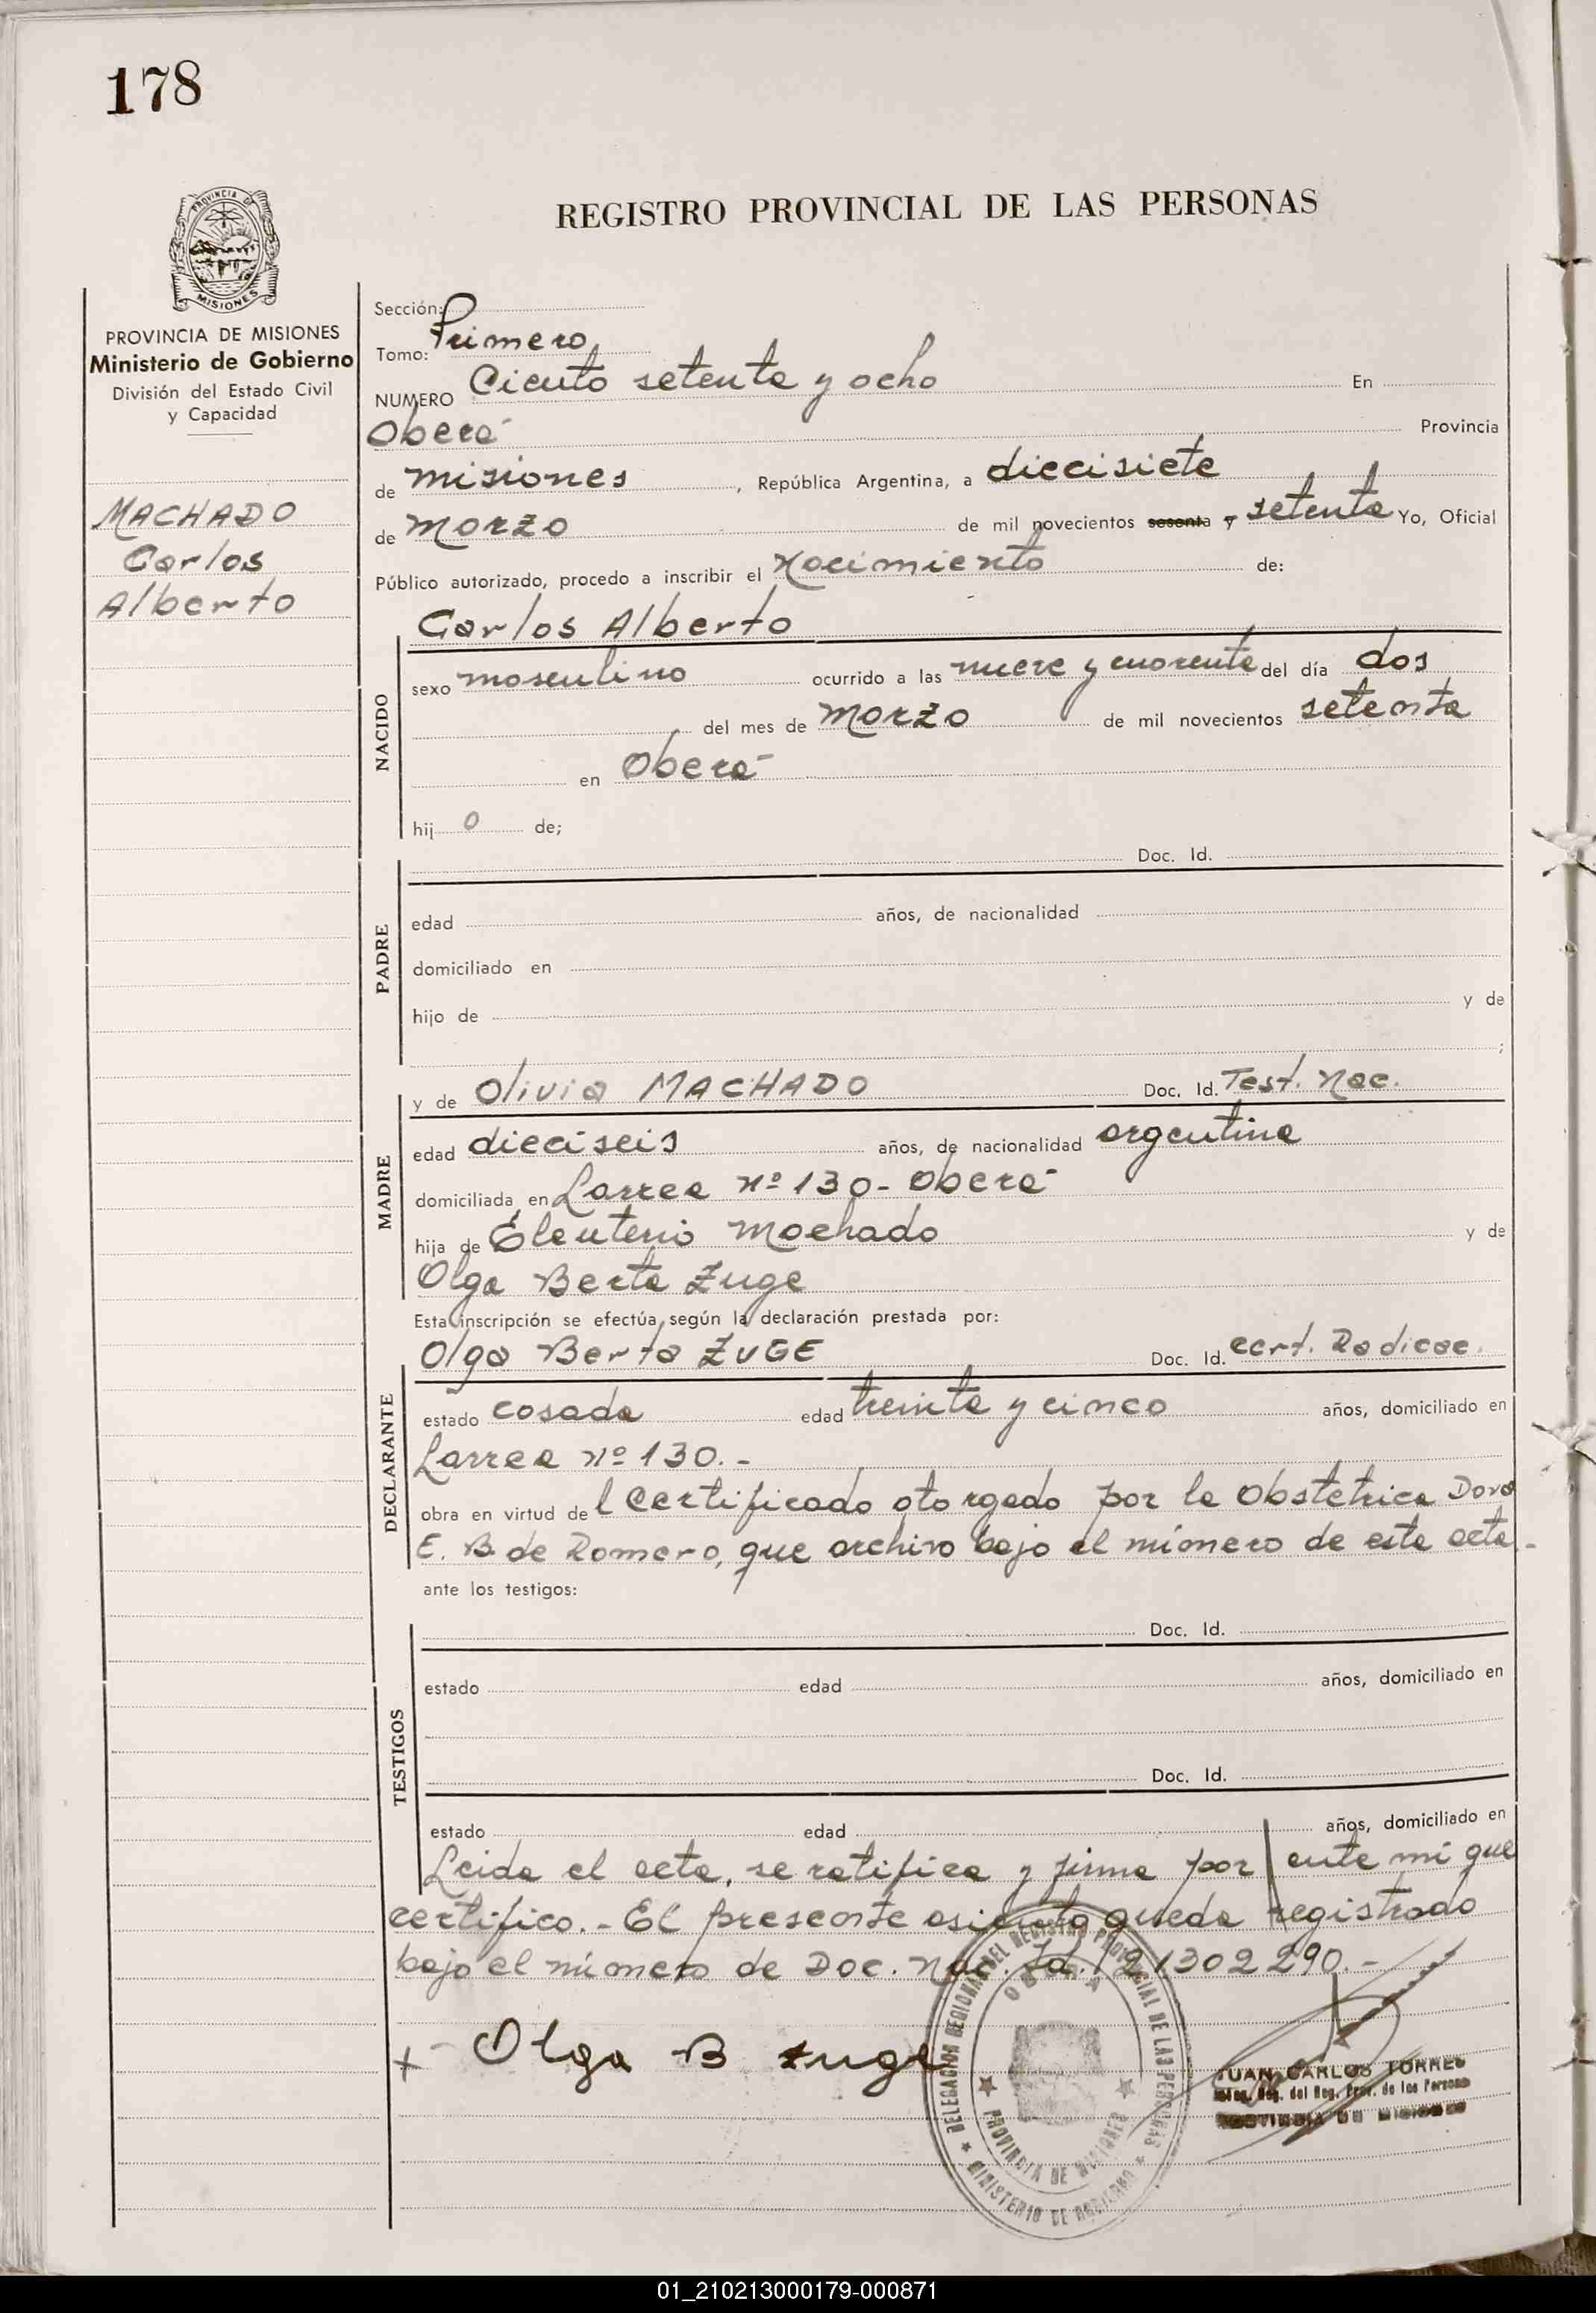 178
PROVINCIA DE MISIONES
REGISTRO PROVINCIAL DE LAS PERSONAS
PROVINCIA DE MISIONES
Ministerio de Gobierno
División del Estado Civil
y Capacidad
MACHADO
Carlos
Alberto
Sección:
Tomo: Primero
NUMERO Ciento setenta y ocho En
Oberá Provincia
de misiones, República Argentina, a diecisiete
de marzo de mil novecientos sesenta y setenta Yo, Oficial
Público autorizado, procedo a inscribir el Nacimiento de:
Carlos Alberto
NACIDO
sexo masculino ocurrido a las nueve y cuarenta del día dos
del mes de marzo de mil novecientos setenta
en Oberá
hij o de;
Doc. Id.
PADRE
edad años, de nacionalidad
domiciliado en
hijo de y de
;
y de Olivia MACHADO Doc. Id. Test. Nac.
MADRE
edad dieciseis años, de nacionalidad argentina
domiciliada en Larrea Nº 130 - Oberá
hija de Eleuterio Machado y de
Olga Berta Zuge
Esta inscripción se efectúa según la declaración prestada por:
Olga Berta ZUGE Doc. Id. cert. Radicac.
DECLARANTE
estado casada edad treinta y cinco años, domiciliado en
Larrea Nº 130.-
obra en virtud de l certificado otorgado por la Obstetrica Dora
E. B. de Romero, que archivo bajo el número de esta acta.-
ante los testigos:
Doc. Id.
TESTIGOS
estado edad años, domiciliado en
Doc. Id.
estado edad años, domiciliado en
Leida el acta, se ratifica y firma por ante mi que
certifico.- El presente asiento queda registrado
bajo el número de Doc. Nac. Id. 21302290.-
+ Olga B zuge
DELEGACION REGIONAL DEL REGISTRO PROVINCIAL DE LAS PERSONAS
OBERA
PROVINCIA DE MISIONES
MINISTERIO DE GOBIERNO
JUAN CARLOS TORRES
Deleg. Reg. del Reg. Prov. de las Personas
PROVINCIA DE MISIONES
01_210213000179-000871